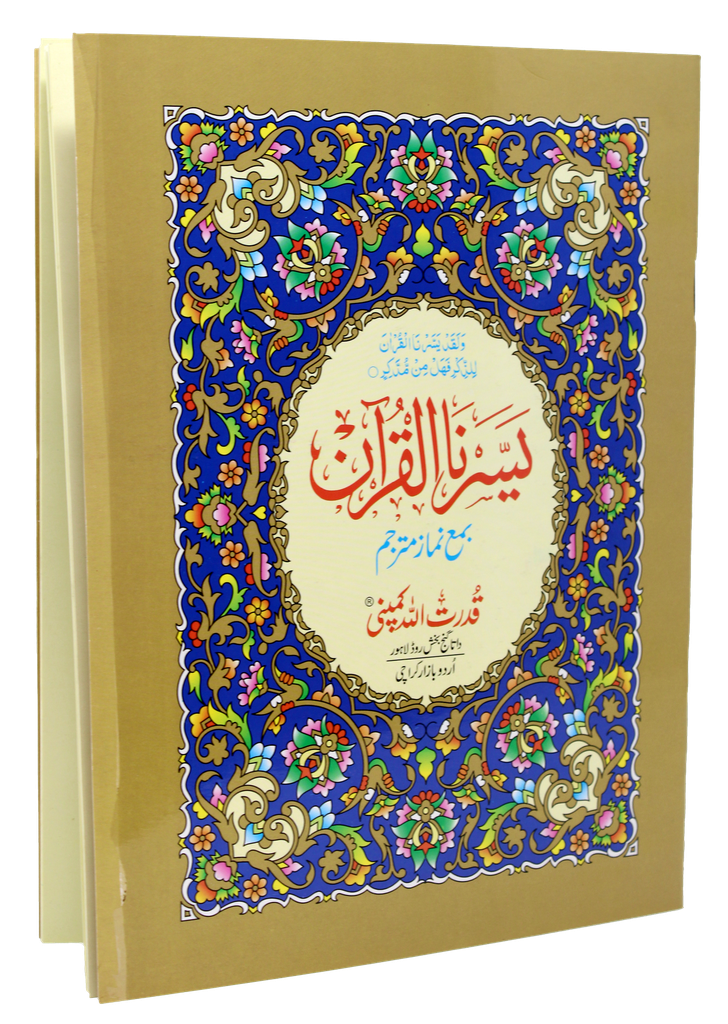 وَلَقَدْ يَسَّرْنَا الْقُرْاٰنَ
لِلذِّكْرِ فَهَلْ مِنْ مُّدَّكِرٍ ○
يَسَّرنَا القُرآن
بمع نماز مترجم
قُدرت اللہ کمپنی ®
داتا گنج بخش روڈ لاہور
اُردو بازار کراچی